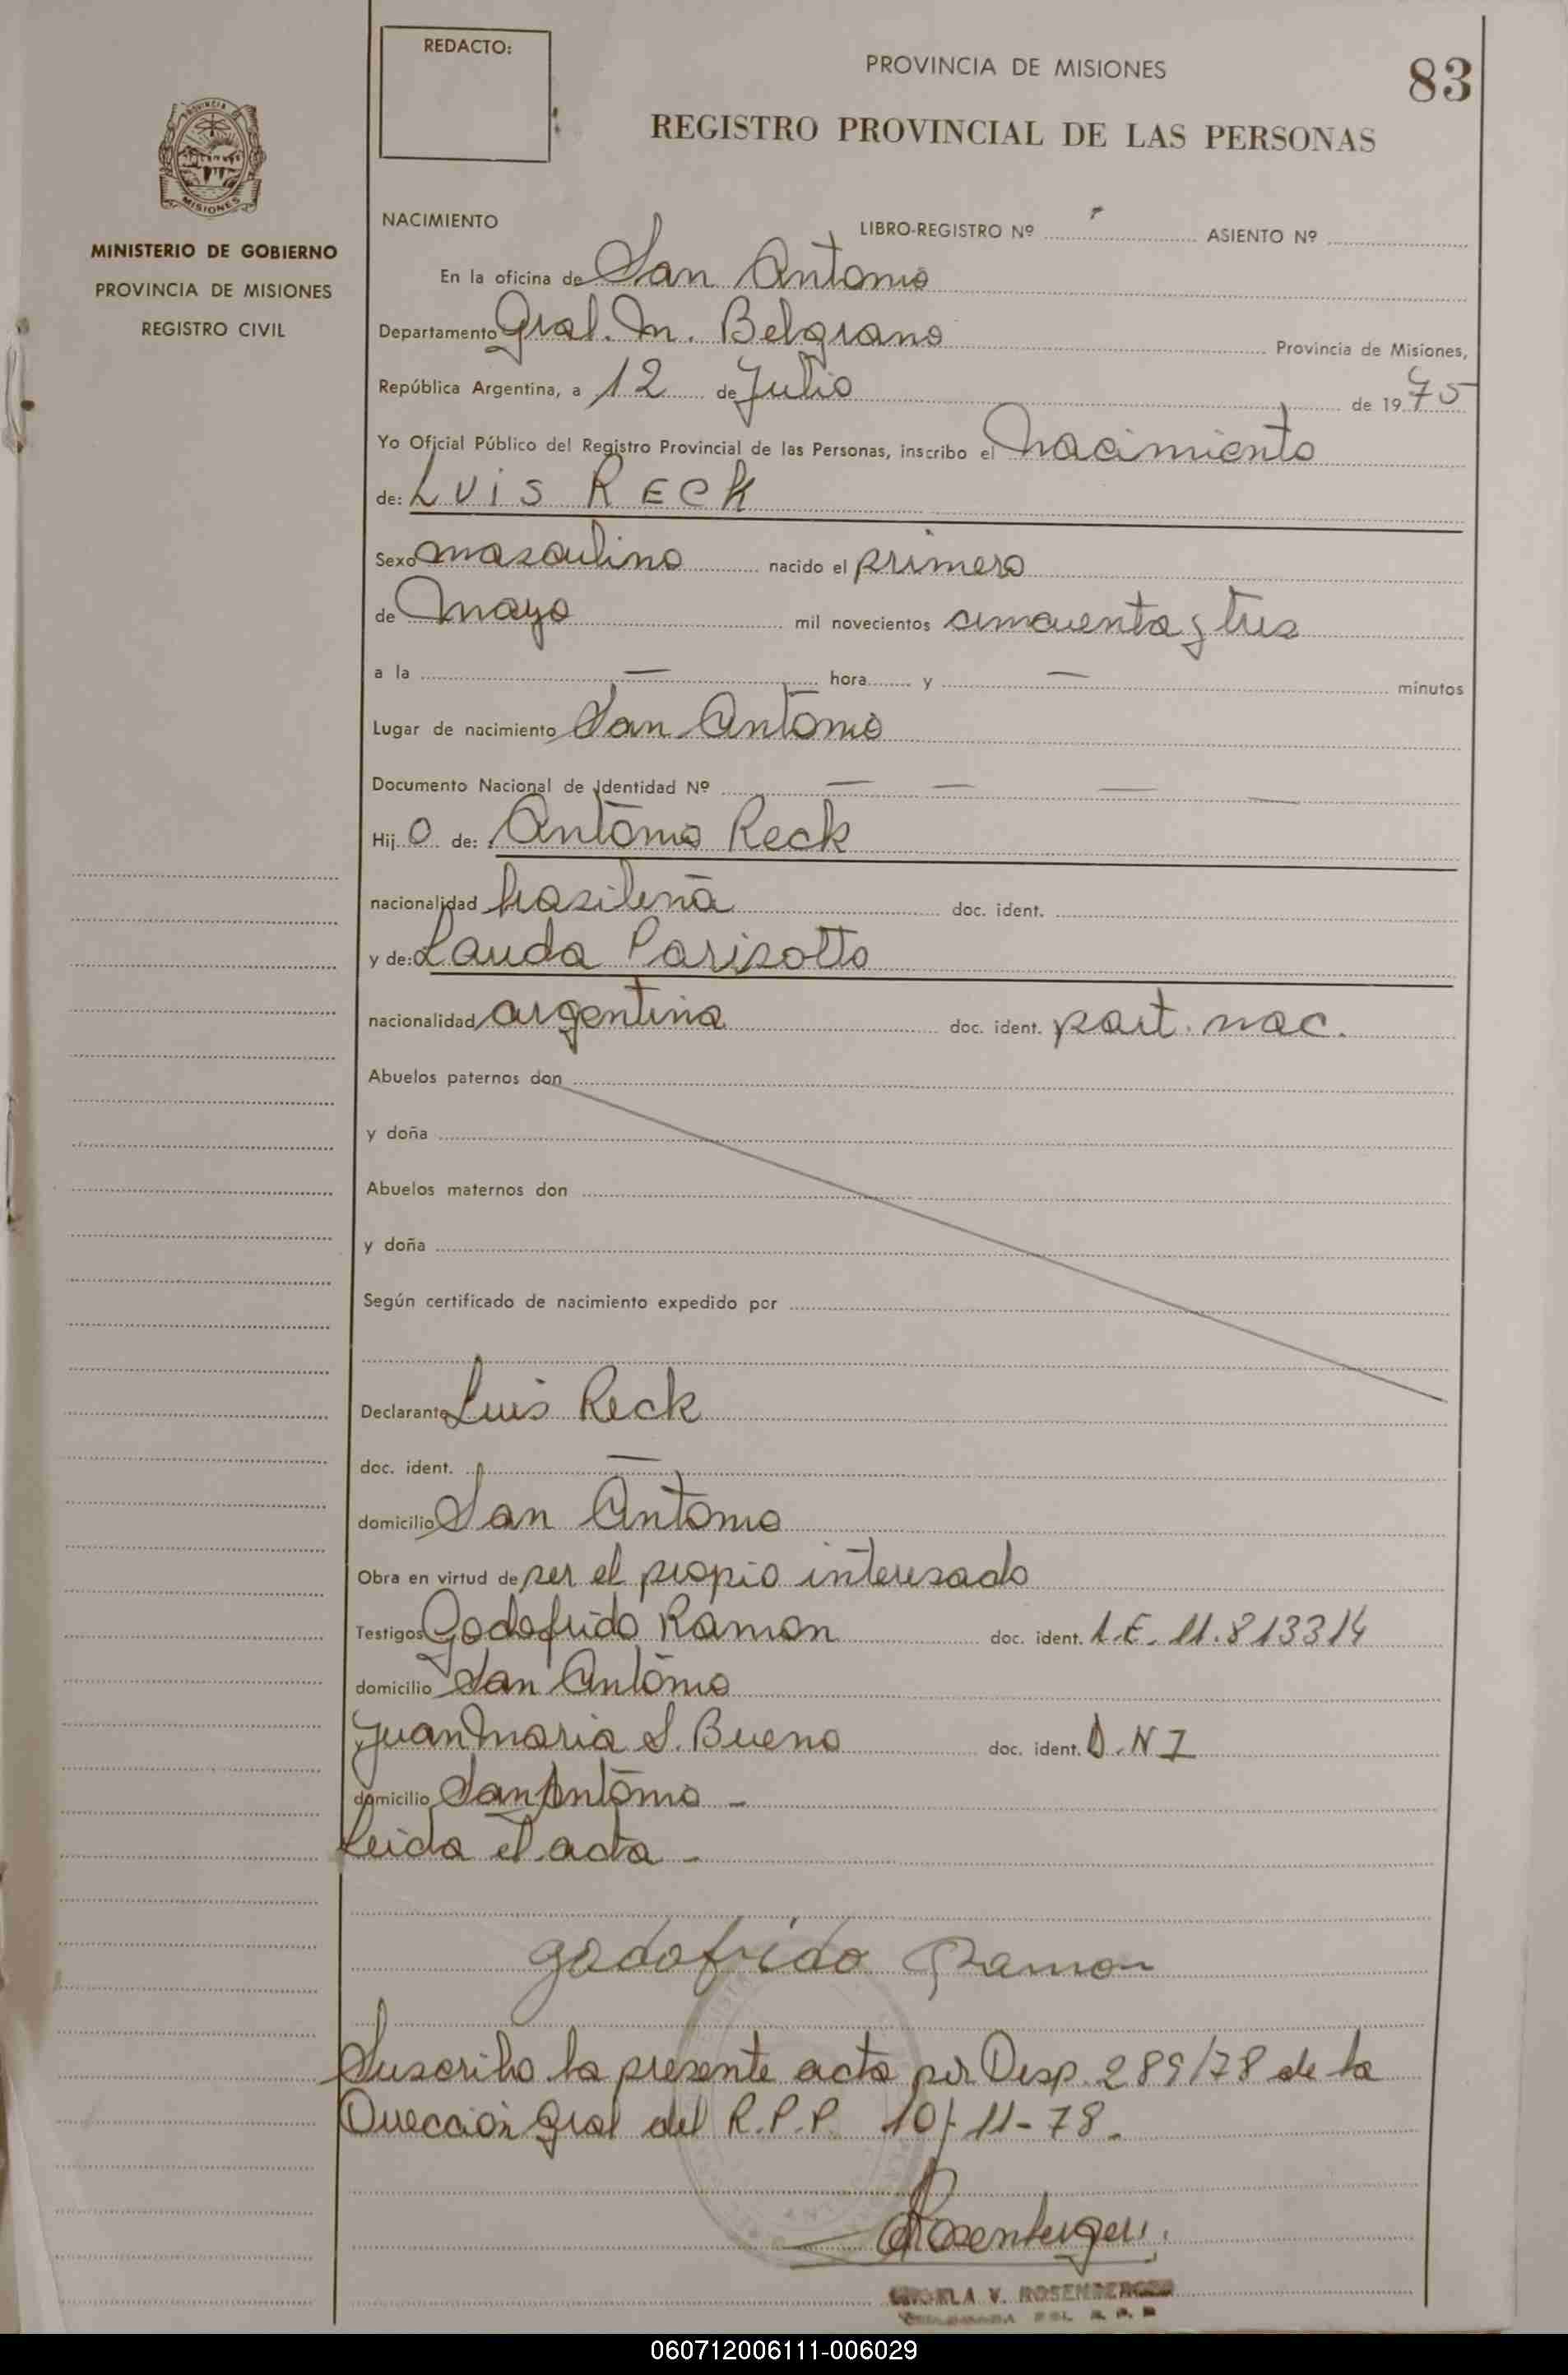 REDACTO:
PROVINCIA DE MISIONES
83
REGISTRO PROVINCIAL DE LAS PERSONAS
MISIONES
MINISTERIO DE GOBIERNO
PROVINCIA DE MISIONES
REGISTRO CIVIL
NACIMIENTO LIBRO-REGISTRO Nº ASIENTO Nº
En la oficina de San Antonio
Departamento Gral. M. Belgrano Provincia de Misiones,
República Argentina, a 12 de Julio de 1975
Yo Oficial Público del Registro Provincial de las Personas, inscribo el Nacimiento
de: LUIS RECK
Sexo masculino nacido el primero
de Mayo mil novecientos cincuenta y tres
a la — hora y — minutos
Lugar de nacimiento San Antonio
Documento Nacional de Identidad Nº — — — —
Hijo de: Antonio Reck
nacionalidad brasileña doc. ident.
y de: Lauda Parisotto
nacionalidad argentina doc. ident. part. nac.
Abuelos paternos don
y doña
Abuelos maternos don
y doña
Según certificado de nacimiento expedido por
Declarante Luis Reck
doc. ident. —
domicilio San Antonio
Obra en virtud de ser el propio interesado
Testigos Godofrido Ramon doc. ident. L.E. 11.813314
domicilio San Antonio
Juan Maria S. Bueno doc. ident. D.N I
domicilio San Antonio -
Leida el acta -
godofrido Ramon
Suscribo la presente acta por Desp. 289/78 de la
Dirección Gral del R.P.P. 10/-11-78.
Rosenberger
V. ROSENBERGER
060712006111-006029